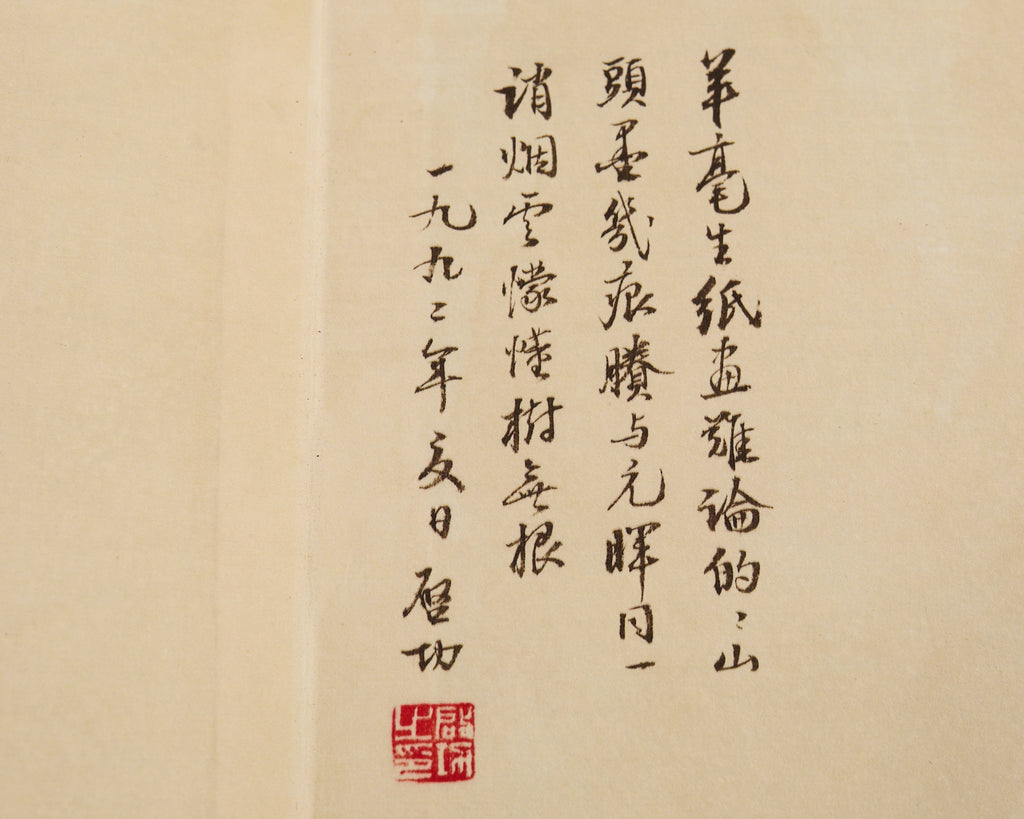 羊毫生紙畫難論的〻山
頭墨幾痕賸与元暉同一
誚烟雲懞懂樹無根
一九九二年夏日 啓功
啓功之印